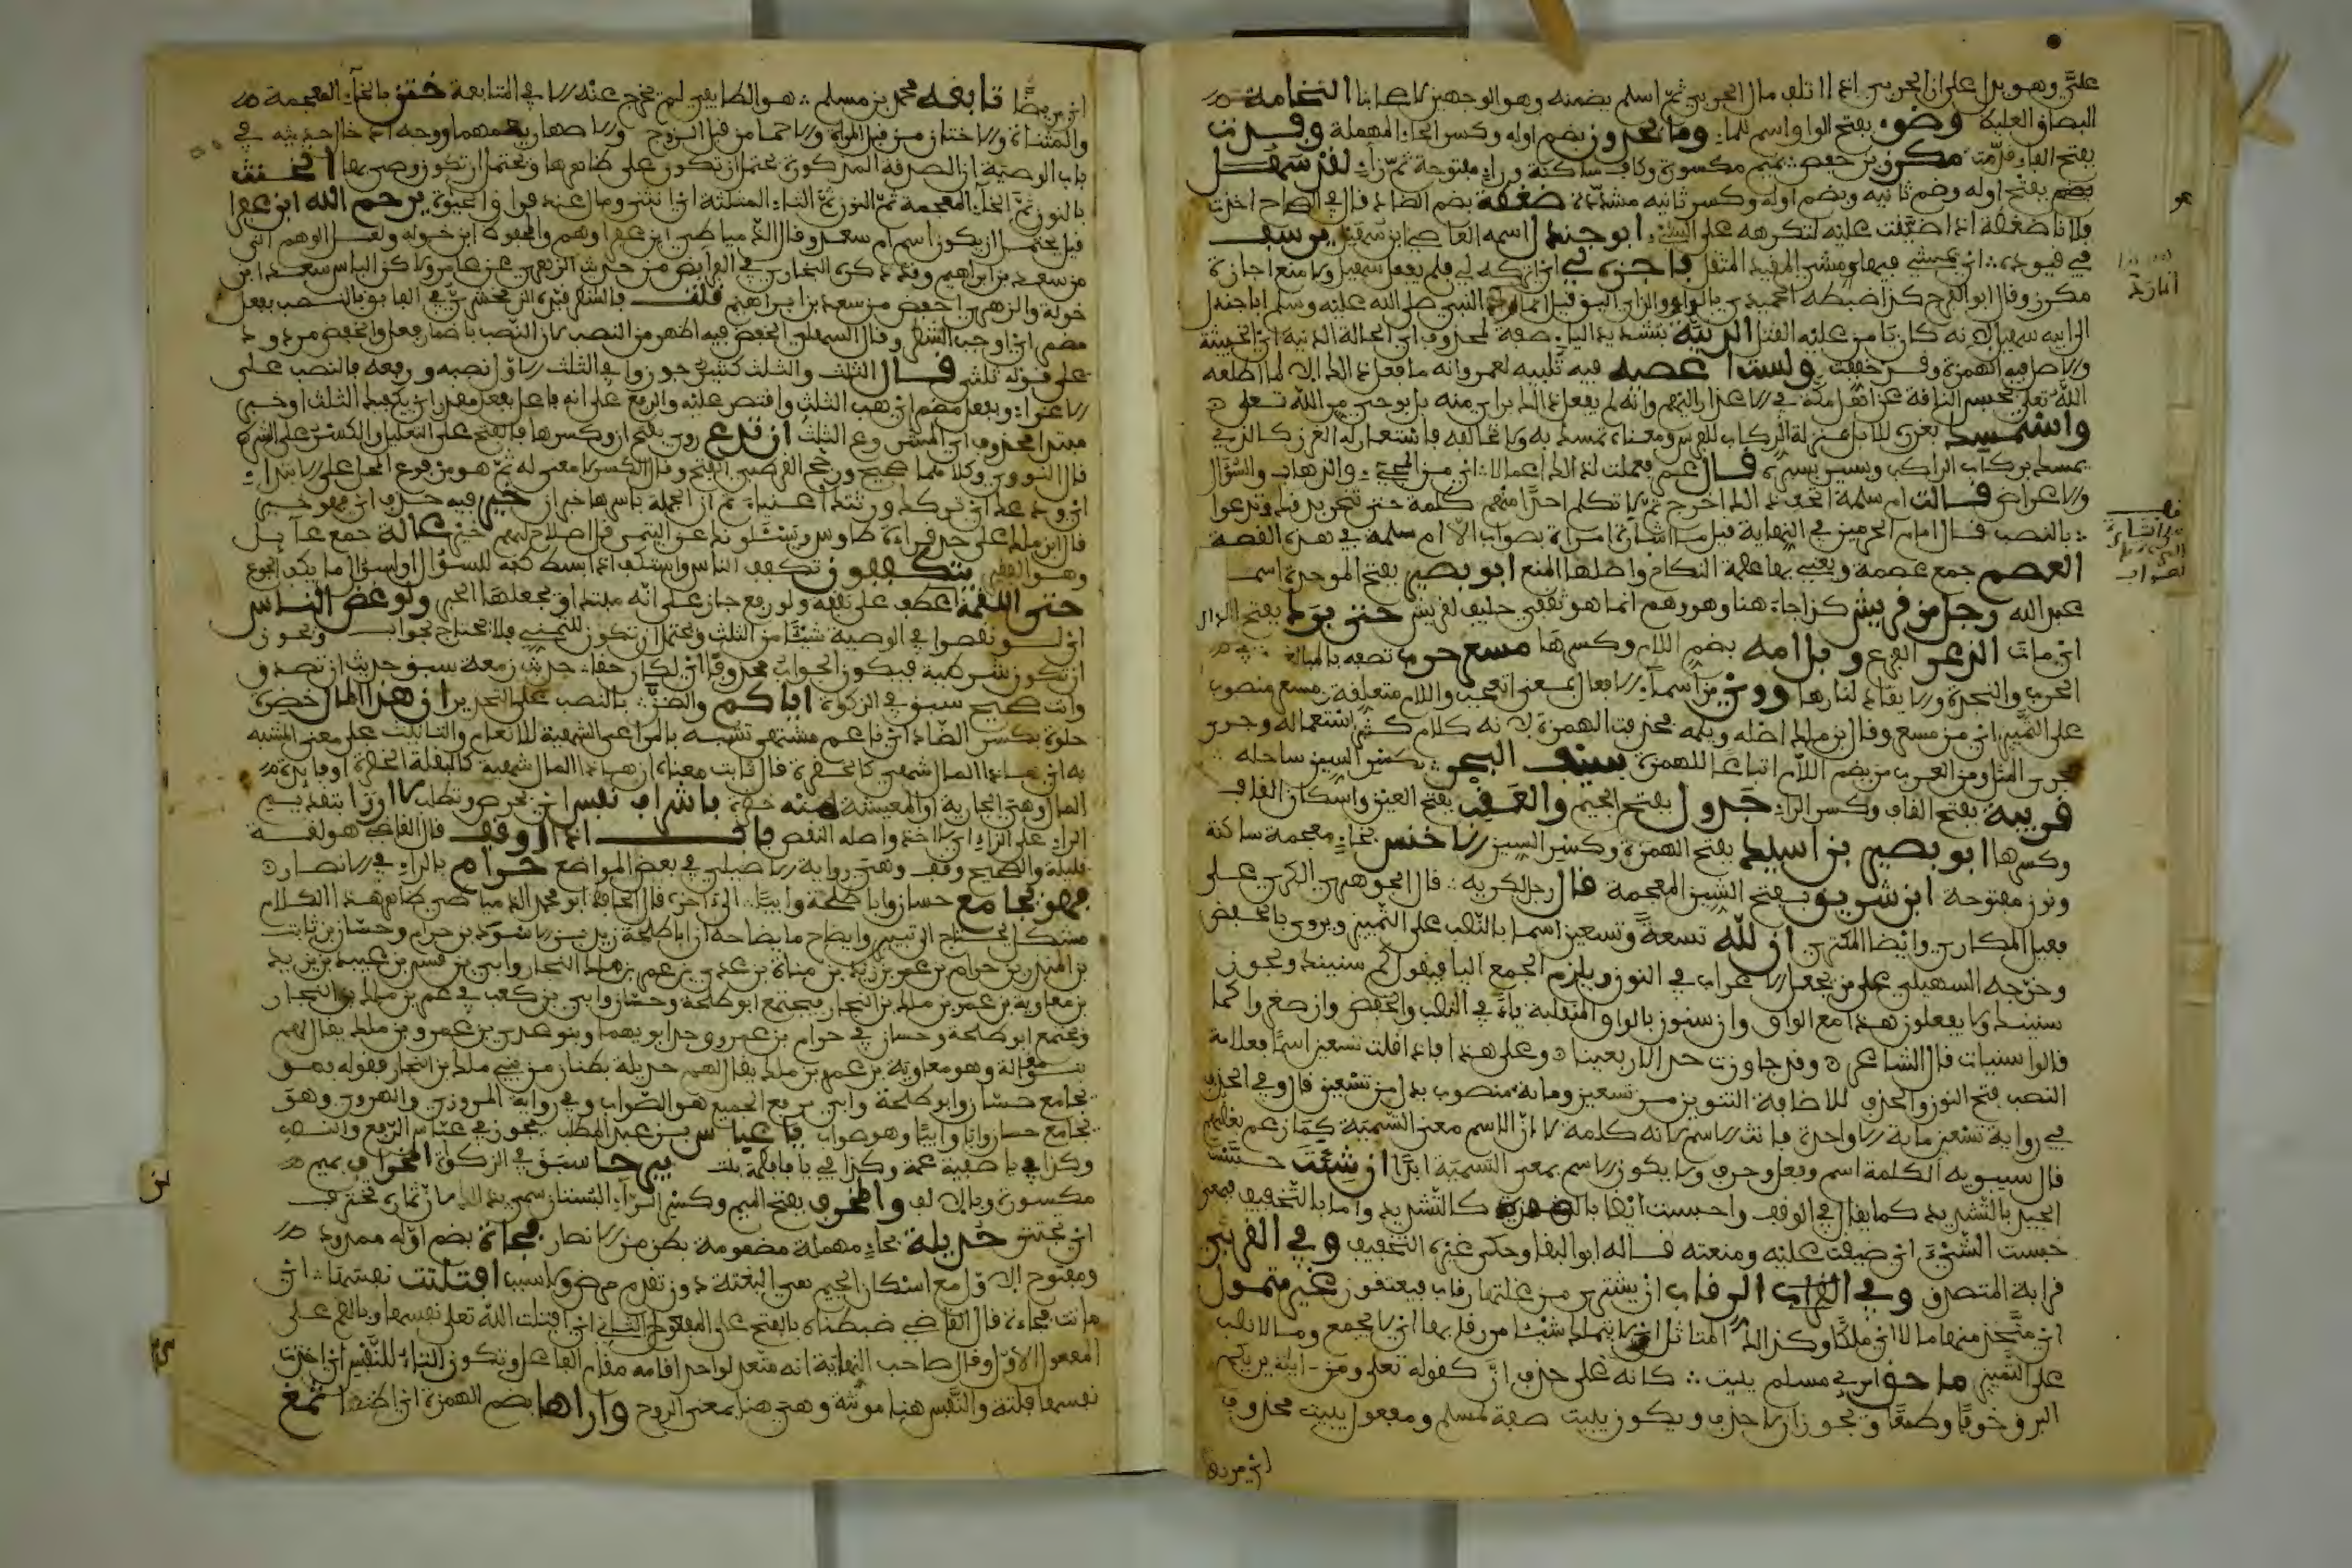 عليّ وهو يدل على ان الحربي اذا اتلف مال الحربي ثم اسلم يضمنه وهو الوجهين لاصحابنا النخامة
البصاق الغليظ وضوء بفتح الواو اسم للماء وما يحدون بضم اوله وكسر الحاء المهملة وفرت
بفتح الفاء مكرز بن حفص بميم مكسورة وكاف ساكنة وراء مفتوحة ثم زاي لقد سهل
بضم بفتح اوله وضم ثانيه وبضم اوله وكسر ثانيه مشددة ضغطة بضم الضاد قال في الصحاح اخذت
فلانا ضغطة اذا ضيقت عليه لتكرهه على الشيء ابو جندل اسمه العاصي ابن سهيل يرسف
في قيوده اي يمشي فيها مشي المقيد المثقل فاجزه لي اي اتركه لي فلم يفعل سهيل ولا منع اجازة
مكرز وقال ابو الفرج كذا ضبطه الحميدي بالواو والزاي اليق قيل انما رد النبي صلى الله عليه وسلم ابا جندل
الى ابيه سهيل لانه كان يامن عليه القتل الدنية بتشديد الياء صفة لمحذوف اي الحالة الدنية اي الخبيثة
والاصل فيه الهمزة وقد خففت ولست اعصيه فيه تنبيه لعمر وانه ما فعل ذلك الا لما اطلعه
الله تعالى بحبس الناقة عن اهل مكة في الاعذار اليهم وانه لم يفعل ذلك براي منه بل بوحي من الله تعلى
واستمسك بغرزه للابل بمنزلة الركاب للفرس ومعناه تمسك به ولا تخالفه فاستعار له الغرز كالذي
يمسك بركاب الراكب ويسير بسيره قال عمر فعملت لذلك اعمالا اي من المجيء والذهاب والسؤال
والاعراض قالت ام سلمة اتحب ذلك اخرج ثم لا تكلم احدا منهم كلمة حتى تنحر بدنك وتدعوا
بالنصب قال امام الحرمين في النهاية قيل ما اشارت امراة بصواب الا ام سلمة في هذه القصة
العصم جمع عصمة ويعني بها عقدة النكاح واصلها المنع ابو بصير بفتح الموحدة اسمه
عبد الله رجل من قريش كذا جاء هنا وهو وهم انما هو ثقفي حليف لقريش حتى برد بفتح الراء
اي مات الذعر الفزع ويل امه بضم اللام وكسرها مسعر حرب تصفه بالمبالغة في
الحرب والنجدة والايقاد لنارها وويل من اسماء الافعال بمعنى التعجب واللام متعلقة مسعر منصوب
على التمييز اي من مسعر وقال بن ملك اصله ويلمه فحذفت الهمزة لانه كلام كثر استعماله وجرى
مجرى المثل ومن العرب من يضم اللام اتباعا للهمزة سيف البحر بكسر السين ساحله
قريبة بفتح القاف وكسر الراء جرول بفتح الجيم والعقب بفتح العين واسكان القاف
وكسرها ابو بصير بن اسيد بفتح الهمزة وكسر السين الاخنس بخاء معجمة ساكنة
ونون مفتوحة ابن شريق بفتح الشين المعجمة قال رجل لكريه قال الجوهري الكري على
فعيل المكاري وايضا المكترى ان لله تسعة وتسعين اسما بالنصب على التمييز ويروى بالخفض
وخرجه السهيلي على من يجعل الاعراب في النون ويلزم الجمع اليا فيقول كم سنينك ويجوز
قالوا سنيات قال الشاعر وقد جاوزت حد الاربعين وعلى هذا فاذا قلت تسعين اسما فعلامة
النصب فتح النون والحذف للاضافة التنوين من تسعين ومائة منصوب بدل من تسعين قال وفي الحذف
في رواية تسعين مائة الا واحدة فانث الاسم لانه كلمة لا ان الاسم معنى التسمية كما زعم بعضهم
قال سيبويه الكلمة اسم وفعل وحرف ولا يكون الاسم بمعنى التسمية ابدا ان شئت حبست
الحبر بالتشديد كما يقال في الوقف واحبست ايضا بالهمزة كالتشديد واما بالتخفيف فبمعنى
حبست الشيء اي ضيقت عليه ومنعته قاله ابو البقا وحكى غيره التخفيف وفي القربى
قرابة المتصدق وفي الرقاب ان يشتري من غلتها رقاب فيعتقون غير متمول
اي متخذ منها مالا اي ملكا وكذا المتاثل اي لا يتملك شيئا من رقابها اي لا يجمع ومالا نصب
على التمييز ما حق امرئ مسلم يبيت كانه على حذف ان كقوله تعلى ومن اياته يريكم
البرق خوفا وطمعا ويجوز ان لا حذف ويكون يبيت صفة لمسلم ومفعول يبيت محذوف
اي مريضا
اي مريضا تابعه محمد بن مسلم هو الطايفي لم يخرج عنه الا في المتابعة ختن بالخاء المعجمة
والمثناة والاختان من قبل المراة والاحما من قبل الزوج والاصهار يجمعهما ووجه ادخال حديثه في
باب الوصية ان الصدقة المذكورة يحتمل ان تكون على ظاهرها ويحتمل ان تكون وصى بها انخنث
بالنون ثم الخاء المعجمة ثم النون ثم الثاء المثلثة اي انثنى ومال عند فراق الحياة يرحم الله ابن عفرا
قيل يحتمل ان يكون اسم ام سعد وقال الدمياطي ابن عفرا وهم والمحفوظ ابن خولة ولعل الوهم اتى
من سعد بن ابراهيم وقد ذكره البخاري في الفرايض من حديث الزهري عن عامر ولاكن البايس سعد ابن
خولة والزهري احفظ من سعد بن ابراهيم قلت فالشطر قيده الزمخشري في الفايق بالنصب بفعل
مضمر اي اوجب الشطر وقال السهيلي الخفض فيه اظهر من النصب لان النصب باضمار فعل والخفض مردود
على قوله ثلثي قال الثلث والثلث كثير جوزوا في الثلث الاول نصبه ورفعه فالنصب على
الاغراء وبفعل مضمر اي هب الثلث واقتصر عليه والرفع على انه فاعل بفعل مقدر اي يكفيك الثلث او خبر
مبتدا محذوف اي المشروع الثلث ان تدع روي بفتح ان وكسرها فالفتح على التعليل والكسر على الشرط
قال النووي وكلاهما صحيح ورجح القرطبي الفتح وقال الكسر لا معنى له ثم هو مرفوع المحل على الابتداء
اي ودعك اي تركك ورثتك اغنياء ثم ان الجملة باسرها خبر ان خير فيه حذف اي فهو خير
قال ابن ملك على حد قراءة طاوس ويسئلونك عن اليتمى قل اصلاح لهم خير عالة جمع عايل
وهو الفقير يتكففون تكفف الناس واستكف اذا بسط كفه للسؤال او سال ما يكف الجوع
حتى اللقمة عطف على نفقة ولو رفع جاز على انه مبتدا وتجعلها الخبر ولو غض الناس
اي لو نقصوا في الوصية شيئا من الثلث ويحتمل ان تكون للتمني فلا تحتاج لجواب ويجوز
ان تكون شرطية فيكون الجواب محذوفا اي لكان حقا حديث زمعة سبق حديث ان تصدق
وانت صحيح سبق في الزكوة اياكم والظن بالنصب على التحذير ان هذا المال خضرة
حلوة بكسر الضاد اي ناعم مشتهى تشبه بالمراعي الشهية للانعام والتانيث على معنى المشبه
به اي هذا المال شهي كالخضرة قال ثابت معناه ان هذا المال شهية كالبقلة الخضرة او فايدة
المال وهي الجارية او المعيشة خضرة باشراف نفس اي بحرص وتطلب لا ارزا بتقديم
الراء على الزاي اي لا اخذ واصله النقص باب اذا اوقف قال القاضي هو لغة
قليلة والصحيح وقف وهي رواية الاصيلي في بعض المواضع حرام بالراء في الانصار
فهو يجامع حسان وابا طلحة وابيا الى اخره قال الحافظ ابو محمد الدمياطي ظاهر هذا الكلام
مشكل يحتاج الى تبيين وايضاح ما يضاحه ان ابا طلحة زيد بن سهل بن الاسود بن حرام وحسان بن ثابت
بن المنذر بن حرام بن عمرو بن زيد بن مناة بن عدي بن عمرو بن ملك النجار وابي بن كعب بن قيس بن عبيد بن زيد
بن معاوية بن عمرو بن ملك بن النجار فيجتمع ابو طلحة وحسان وابي بن كعب في عمرو بن ملك بن النجار
ويجتمع ابو طلحة وحسان في حرام بن عمرو وجد ابويهما وبنو عدي بن عمرو بن ملك يقال لهم
بنو مغالة وهو معاوية بن عمرو بن ملك يقال لهم حديلة بطنان من بني ملك بن النجار فقوله فهو
يجامع حسان وابو طلحة وابي برفع الجميع هو الصواب وفي رواية المروزي والهروي وهو
يجامع حسان وابا وابيا وهو صواب يا عباس بن عبد المطلب يجوز في عباس الرفع والنصب
وكذا في يا صفية عمة وكذا في يا فاطمة بنت بيرحا سبق في الزكوة المخراف بميم
مكسورة وبالالف والمخرف بفتح الميم وكسر الراء البستان سمي بذلك لان ثماره تخترف
اي تجتنى حديلة بحاء مهملة مضمومة بطن من الانصار فجاة بضم اوله ممدود
ومفتوح الاول مع اسكان الجيم يعني البغتة دون تقدم مرض ولا سبب افتلتت نفسها اي
ماتت فجاءة قال القاضي ضبطناه بالفتح على المفعول الثاني اي افتلت الله تعلى نفسها وبالضم على
المفعول الاول وقال صاحب النهاية انه متعد لواحد اقامه مقام الفاعل وتكون التاء للنفس اي اخذت
نفسها فلتة والنفس هنا مونثة وهي هنا بمعنى الروح واراها بضم الهمزة اي اظنها ثمغ